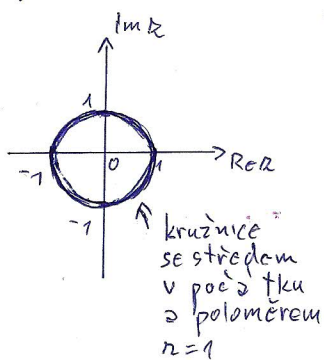 Im z
1
-1
0
1
Re z
-1
kružnice
se středem
v počátku
a poloměrem
r=1